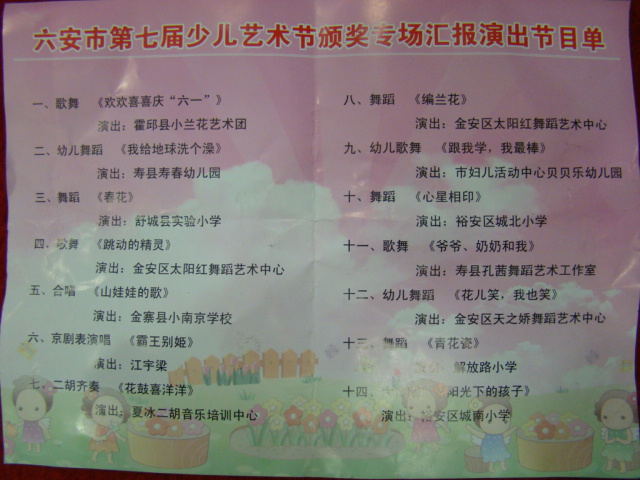 六安市第七届少儿艺术节颁奖专场汇报演出节目单
一、歌舞 《欢欢喜喜庆“六一”》
演出：霍邱县小兰花艺术团
二、幼儿舞蹈 《我给地球洗个澡》
演出：寿县寿春幼儿园
三、舞蹈 《春花》
演出：舒城县实验小学
四、歌舞 《跳动的精灵》
演出：金安区太阳红舞蹈艺术中心
五、合唱 《山娃娃的歌》
演出：金寨县小南京学校
六、京剧表演唱 《霸王别姬》
演出：江宇梁
七、二胡齐奏 《花鼓喜洋洋》
演出：夏冰二胡音乐培训中心
八、舞蹈 《编兰花》
演出：金安区太阳红舞蹈艺术中心
九、幼儿歌舞 《跟我学，我最棒》
演出：市妇儿活动中心贝贝乐幼儿园
十、舞蹈 《心星相印》
演出：裕安区城北小学
十一、歌舞 《爷爷、奶奶和我》
演出：寿县孔茜舞蹈艺术工作室
十二、幼儿舞蹈 《花儿笑，我也笑》
演出：金安区天之娇舞蹈艺术中心
十三、舞蹈 《青花瓷》
解放路小学
十四、 阳光下的孩子》
演出：裕安区城南小学